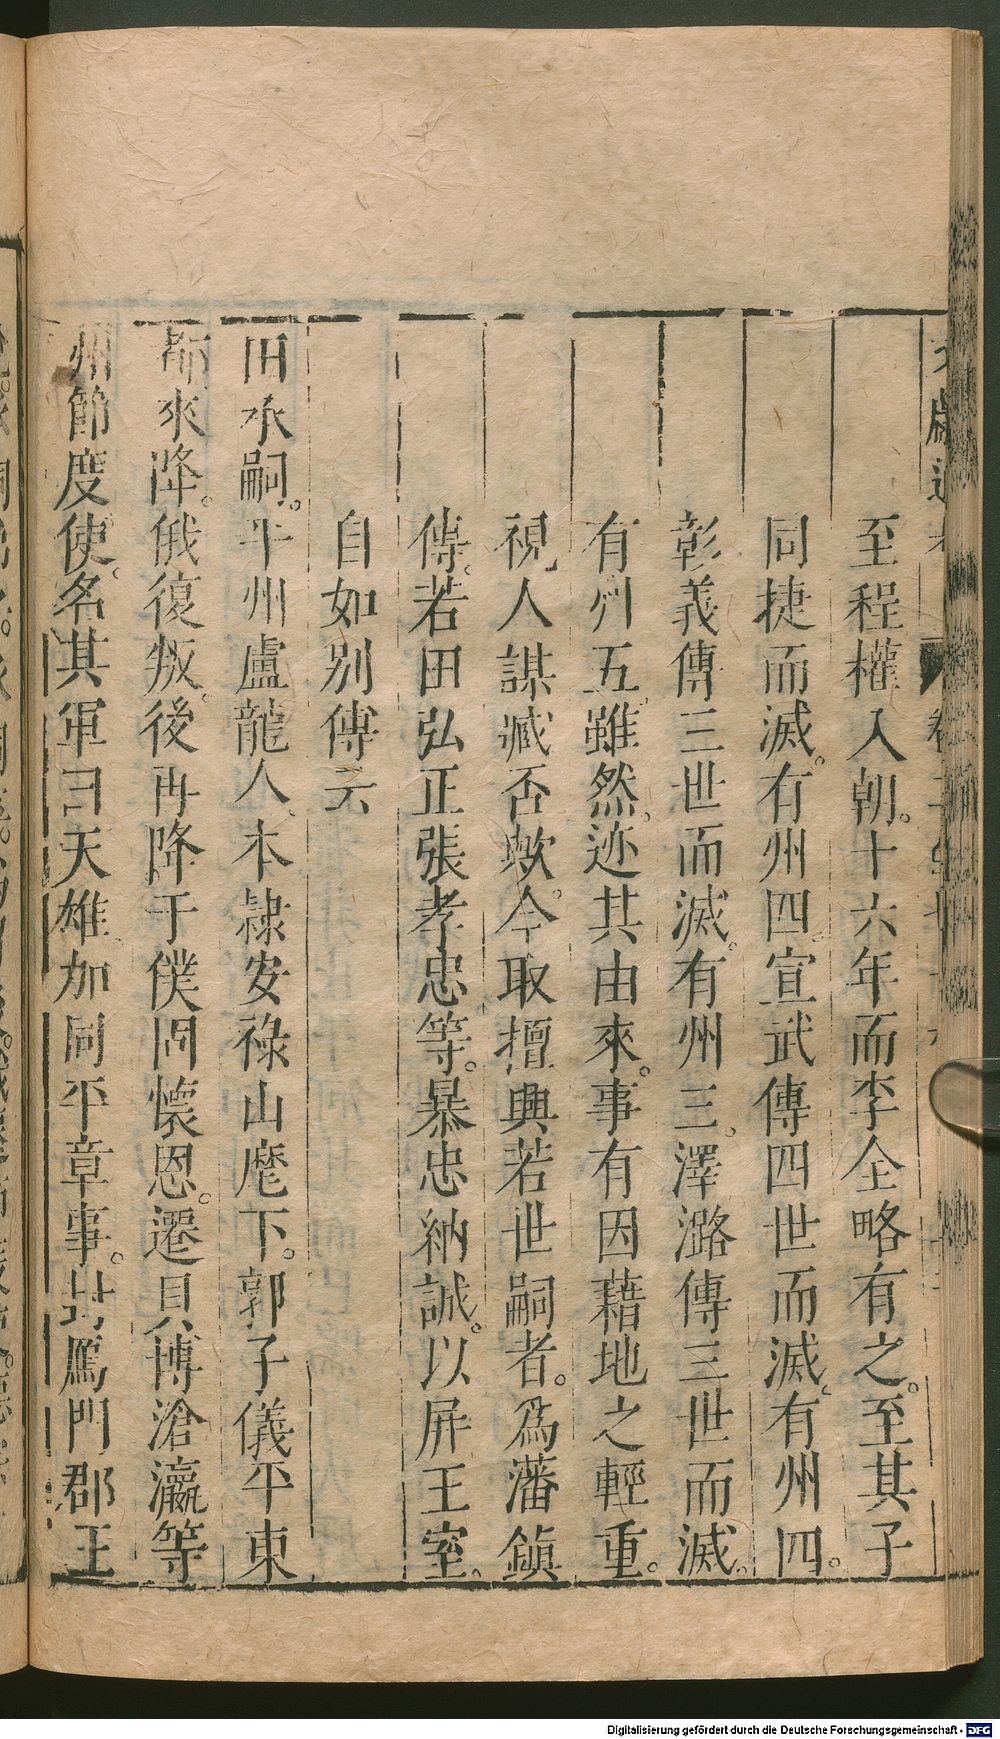 至程權入朝。十六年而李全略有之。至其子
同捷而滅。有州四。宣武傳四世而滅。有州四。
彰義傳三世而滅。有州三。澤潞傳三世而滅。
有州五。雖然、迹其由來。事有因藉地之輕重。
視人謀臧否歟。今取擅興若世嗣者。為藩鎮
傳。若田弘正張孝忠等。暴忠納誠。以屏王室。
自如別傳云
田承嗣。平州盧龍人、本隸安祿山麾下。郭子儀平東
都來降。俄復叛。後再降于僕固懷恩。遷貝博滄瀛等
州節度使。名其軍曰天雄、加同平章事。封鴈門郡王
Digitalisierung gefördert durch die Deutsche Forschungsgemeinschaft - DFG